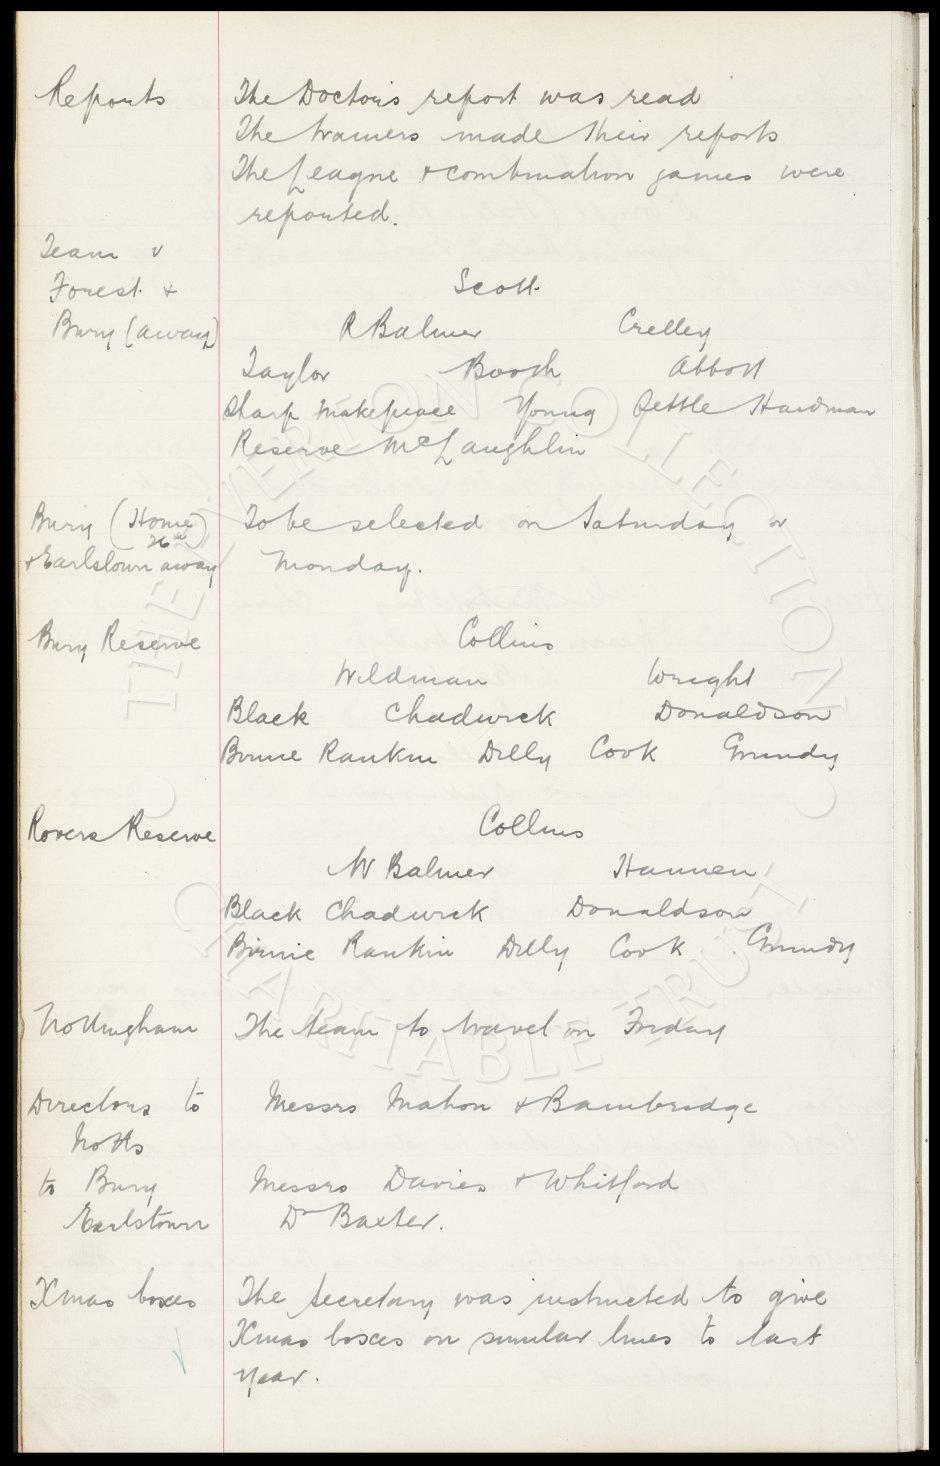 Reports The Doctors report was read
The trainers made their reports
The League + combination games were
reported.
Team v
Forest + Scott
Bury (away) R Balmer Crelley
Taylor Booth Abbott
Sharp Makepeace Young Settle Hardman
Reserve McLaughlin
Bury (Home) To be selected on Saturday or
26th
+ Earlstown away Monday.
Bury Reserve Collins
Wildman Wright
Black Chadwick Donaldson
Birnie Rankin Dilly Cook Grundy
Rovers Reserve Collins
W Balmer Hannen
Black Chadwick Donaldson
Birnie Rankin Dilly Cook Grundy
Nottingham The team to travel on Friday
Directors to Messrs Mahon + Bainbridge
Notts
to Bury Messrs Davies + Whitford
Earlstown Dr Baxter.
Xmas boxes The Secretary was instructed to give
Xmas boxes on similar lines to last
year.
THE EVERTON COLLECTION
CHARITABLE TRUST